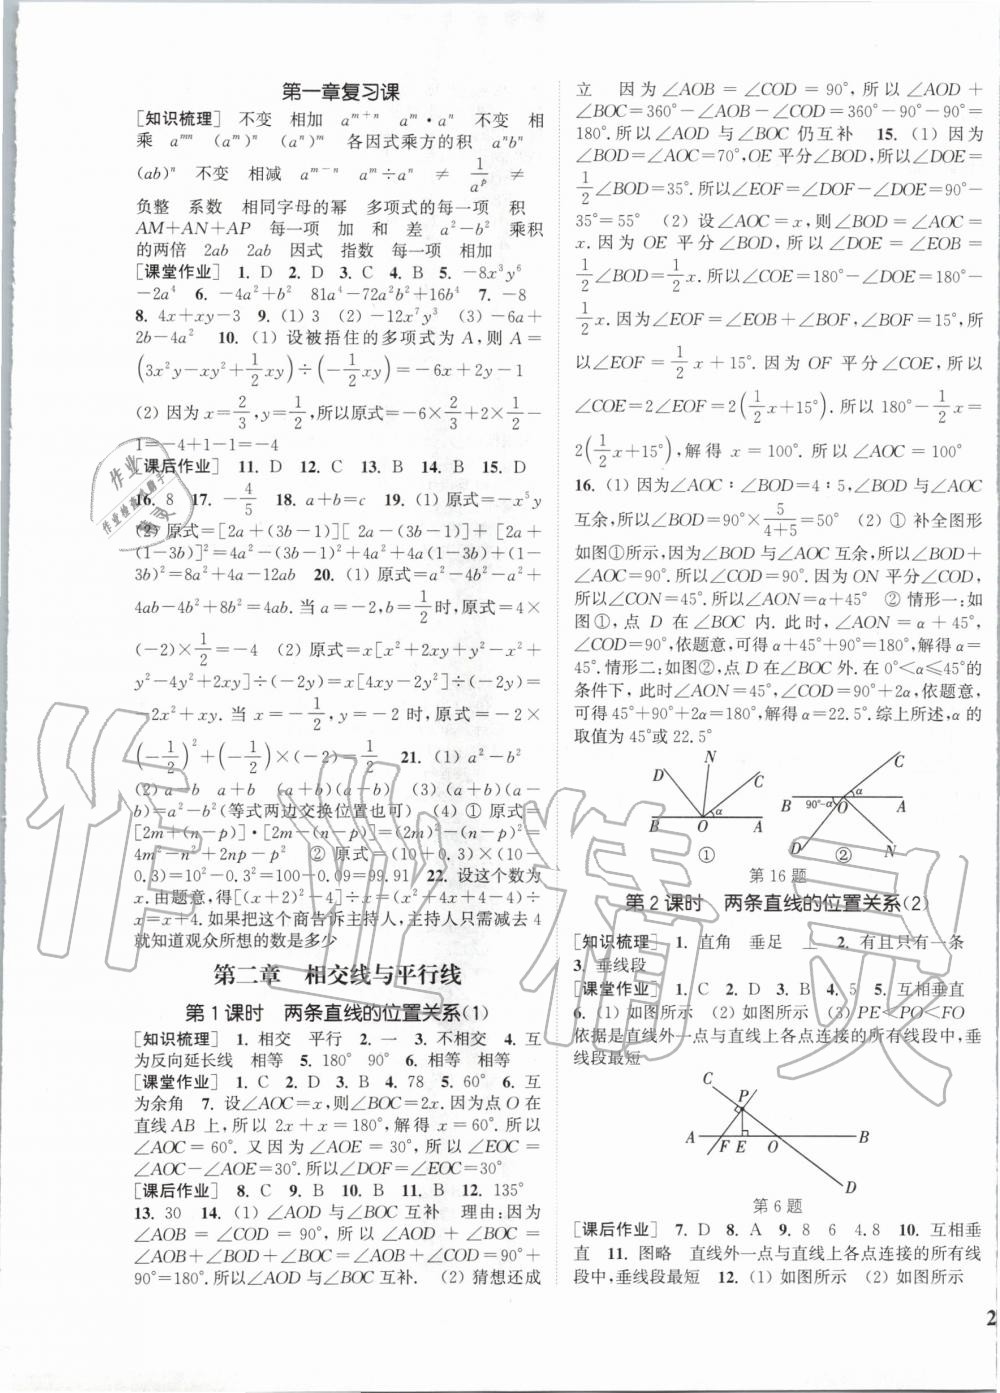 第一章复习课
[知识梳理] 不变 相加 a^{m+n} a^m·a^n 不变 相
乘 a^{mn} (a^m)^n (a^n)^m 各因式乘方的积 a^nb^n
(ab)^n 不变 相减 a^{m-n} a^m÷a^n ≠ ≠ 1/a^p
负整 系数 相同字母的幂 多项式的每一项 积
AM+AN+AP 每一项 加 和 差 a²-b² 乘积
的两倍 2ab 2ab 因式 指数 每一项 相加
[课堂作业] 1. D 2. D 3. C 4. B 5. -8x³y⁶
-2a⁴ 6. -4a²+b² 81a⁴-72a²b²+16b⁴ 7. -8
8. 4x+xy-3 9. (1) 3 (2) -12x⁷y³ (3) -6a+
2b-4a² 10. (1) 设被捂住的多项式为 A,则 A=
(3x²y-xy²+1/2xy)÷(-1/2xy)=-6x+2y-1
(2) 因为 x=2/3,y=1/2,所以原式=-6×2/3+2×1/2-
1=-4+1-1=-4
[课后作业] 11. D 12. C 13. B 14. B 15. D
16. 8 17. -4/5 18. a+b=c 19. (1) 原式=-x⁵y
(2) 原式=[2a+(3b-1)][2a-(3b-1)]+[2a+
(1-3b)]²=4a²-(3b-1)²+4a²+4a(1-3b)+(1-
3b)²=8a²+4a-12ab 20. (1) 原式=a²-4b²-a²+
4ab-4b²+8b²=4ab.当 a=-2,b=1/2时,原式=4×
(-2)×1/2=-4 (2) 原式=x[x²+2xy+y²-x²+
y²-4y²+2xy]÷(-2y)=x[4xy-2y²]÷(-2y)=
-2x²+xy.当 x=-1/2,y=-2 时,原式=-2×
(-1/2)²+(-1/2)×(-2)=1/2 21. (1) a²-b²
(2) a-b a a+b (a+b)(a-b) (3) (a+b)(a-
b)=a²-b²(等式两边交换位置也可) (4) ① 原式=
[2m+(n-p)]·[2m-(n-p)]=(2m)²-(n-p)²=
4m²-n²+2np-p² ② 原式=(10+0.3)×(10-
0.3)=10²-0.3²=100-0.09=99.91 22. 设这个数为
x.由题意,得[(x+2)²-4]÷x=(x²+4x+4-4)÷
x=x+4.如果把这个商告诉主持人,主持人只需减去 4
就知道观众所想的数是多少
第二章 相交线与平行线
第 1 课时 两条直线的位置关系(1)
[知识梳理] 1. 相交 平行 2. 一 3. 不相交 4. 互
为反向延长线 相等 5. 180° 90° 6. 相等 相等
[课堂作业] 1. C 2. D 3. B 4. 78 5. 60° 6. 互
为余角 7. 设∠AOC=x,则∠BOC=2x.因为点 O 在
直线 AB 上,所以 2x+x=180°,解得 x=60°.所以
∠AOC=60°.又因为∠AOE=30°,所以∠EOC=
∠AOC-∠AOE=30°.所以∠DOF=∠EOC=30°
[课后作业] 8. C 9. B 10. B 11. B 12. 135°
13. 30 14. (1) ∠AOD 与∠BOC 互补 理由:因为
∠AOB=∠COD=90°,所以∠AOD+∠BOC=
∠AOB+∠BOD+∠BOC=∠AOB+∠COD=90°+
90°=180°.所以∠AOD 与∠BOC 互补. (2) 猜想还成
立 因为∠AOB=∠COD=90°,所以∠AOD+
∠BOC=360°-∠AOB-∠COD=360°-90°-90°=
180°.所以∠AOD 与∠BOC 仍互补 15. (1) 因为
∠BOD=∠AOC=70°,OE 平分∠BOD,所以∠DOE=
1/2∠BOD=35°.所以∠EOF=∠DOF-∠DOE=90°-
35°=55° (2) 设∠AOC=x,则∠BOD=∠AOC=
x.因为 OE 平分∠BOD,所以∠DOE=∠EOB=
1/2∠BOD=1/2x.所以∠COE=180°-∠DOE=180°-
1/2x.因为∠EOF=∠EOB+∠BOF,∠BOF=15°,所
以∠EOF=1/2x+15°.因为 OF 平分∠COE,所以
∠COE=2∠EOF=2(1/2x+15°).所以180°-1/2x=
2(1/2x+15°),解得 x=100°.所以∠AOC=100°
16. (1) 因为∠AOC∶∠BOD=4∶5,∠BOD与∠AOC
互余,所以∠BOD=90°×5/(4+5)=50° (2) ① 补全图形
如图①所示,因为∠BOD 与∠AOC 互余,所以∠BOD+
∠AOC=90°.所以∠COD=90°.因为 ON 平分∠COD,
所以∠CON=45°.所以∠AON=α+45° ② 情形一:如
图①,点 D 在∠BOC 内.此时,∠AON=α+45°,
∠COD=90°,依题意,可得 α+45°+90°=180°,解得 α=
45°.情形二:如图②,点 D 在∠BOC 外.在 0°<α≤45°的
条件下,此时∠AON=45°,∠COD=90°+2α,依题意,
可得 45°+90°+2α=180°,解得 α=22.5°.综上所述,α 的
取值为 45°或 22.5°
D N C α B O A ①
C B 90°-α α O A D N ②
第 16 题
第 2 课时 两条直线的位置关系(2)
[知识梳理] 1. 直角 垂足 ⊥ 2. 有且只有一条
3. 垂线段
[课堂作业] 1. C 2. D 3. B 4. 5 5. 互相垂直
6. (1) 如图所示 (2) 如图所示 (3) PE<PO<FO
依据是直线外一点与直线上各点连接的所有线段中,垂
线段最短
C P A F E O B D
第 6 题
[课后作业] 7. D 8. A 9. 8 6 4.8 10. 互相垂
直 11. 图略 直线外一点与直线上各点连接的所有线
段中,垂线段最短 12. (1) 如图所示 (2) 如图所示
2
作业精灵